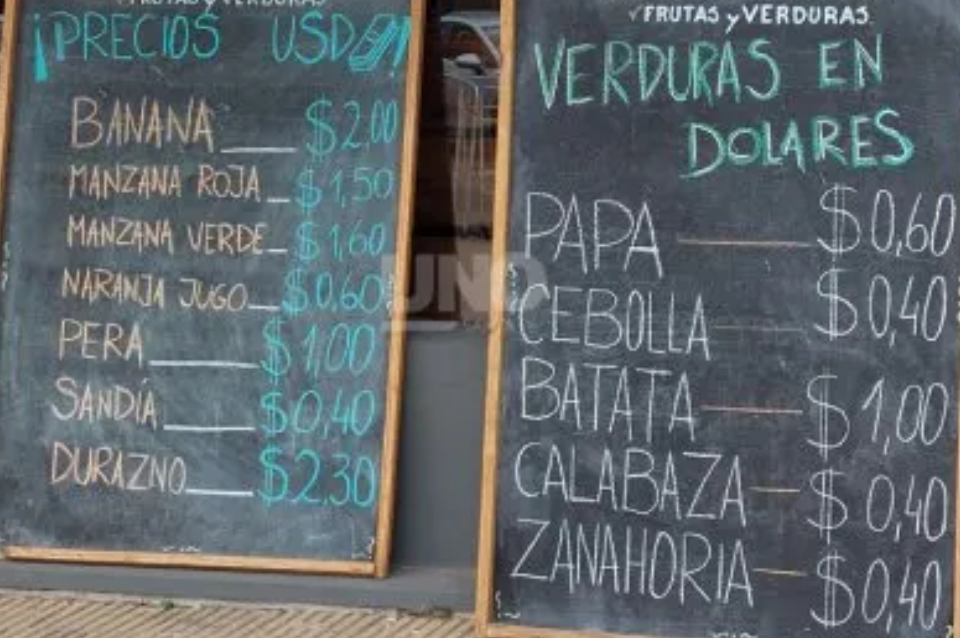 FRUTAS y VERDURAS
¡PRECIOS USD!
BANANA $2.00
MANZANA ROJA $1,50
MANZANA VERDE $1,60
NARANJA JUGO $0.60
PERA $1,00
SANDÍA $0,40
DURAZNO $2.30
FRUTAS y VERDURAS
VERDURAS EN
DOLARES
PAPA $0,60
CEBOLLA $0,40
BATATA $1,00
CALABAZA $0,40
ZANAHORIA $0,40
UNO